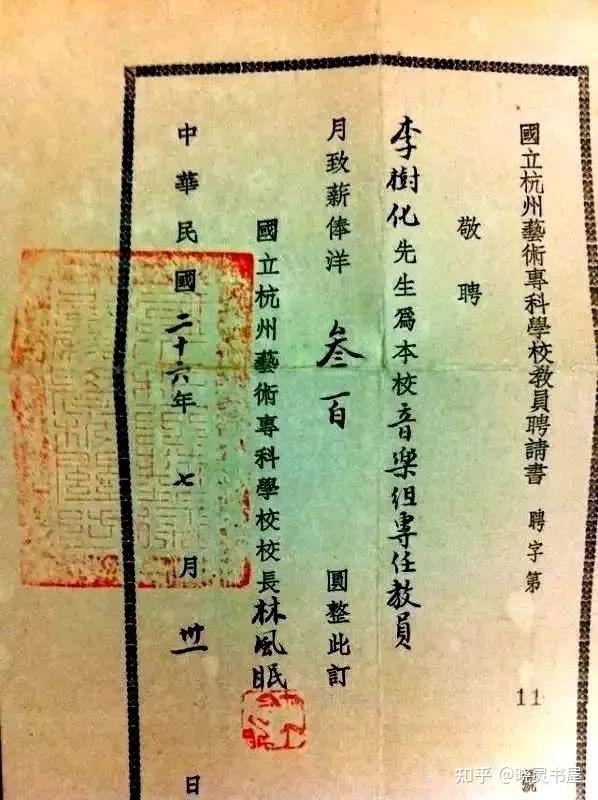 國立杭州藝術專科學校教員聘請書 聘字第 11 號
敬聘
李樹化先生爲本校音樂組專任教員
月致薪俸洋 叁百 圓整此訂
國立杭州藝術專科學校校長林風眠
中華民國二十六年 七 月 卅一 日
知乎 @晓灵书屋